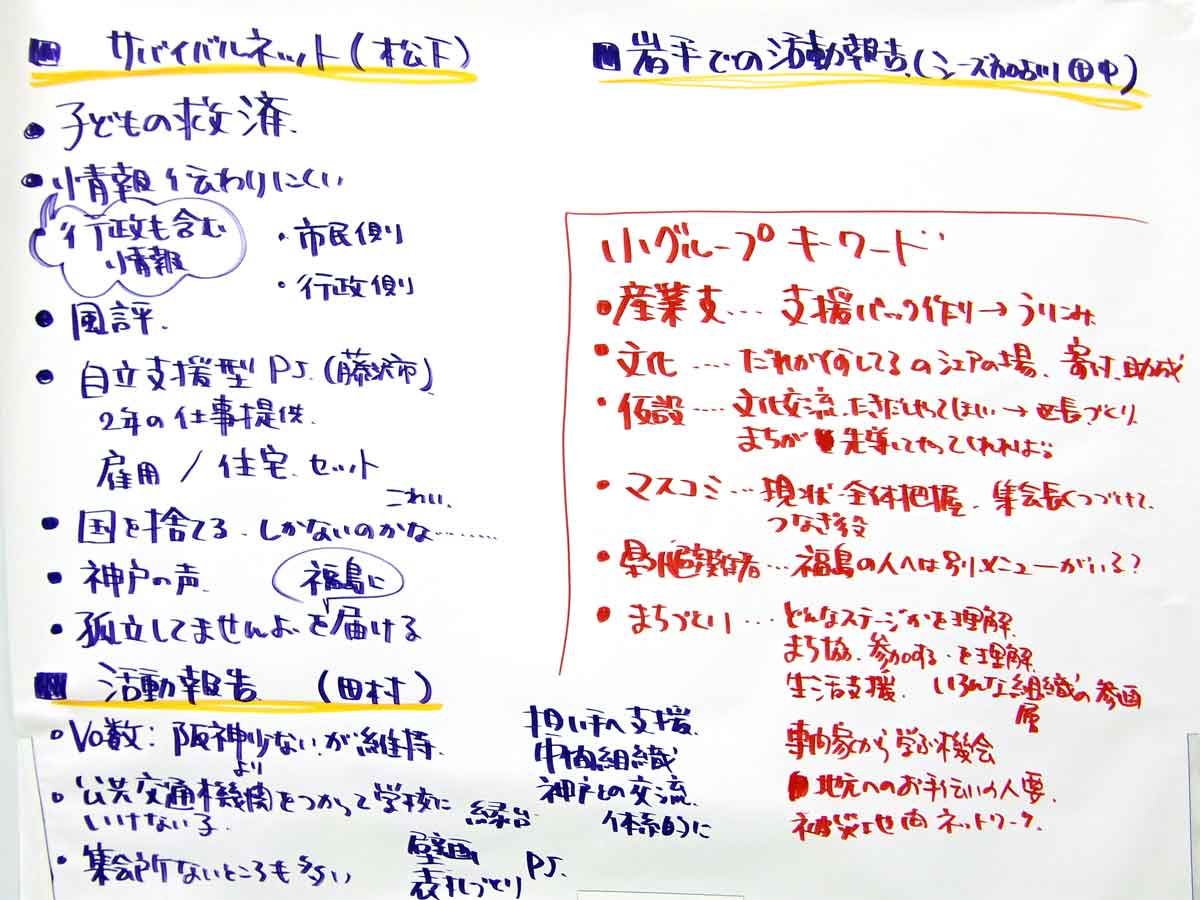 ■ サバイバルネット(松下)
• 子どもの救済.
• 情報伝わりにくい
行政も含む
情報
・市民側
・行政側
• 風評.
• 自立支援型 PJ.(藤沢市)
2年の仕事提供.
雇用 / 住宅.セット
これい.
• 国を捨てる.しかないのかな………
• 神戸の声.
福島に
• 孤立してませんよ.を届ける
■ 活動報告 (田村)
• Vo数:阪神少ないが維持.
より
• 公共交通機関をつかって学校に
いけない子.
• 集会所ないところも多い
縁台
壁画
表札づくり PJ.
担い手へ支援.
中間組織
神戸との交流.
体系的に
■ 岩手での活動報告.(シーズ加古川 田中)
小グループキーワード
• 産業支… 支援パック作り→うりこみ
• 文化 …. だれが何してるのシェアの場、寄付、助成
• 仮設 …. 文化交流.たきだしやってほしい→ づくり
まちが 先導してやってくれれば
• マスコミ… 現状 全体把握、集会長くつづけて.
つなぎ役
• 県外避難者… 福島の人へは別メニューがいる?
• まちづくり … どんなステージかを理解.
まち協.参加する.を理解.
生活支援. いろんな組織の参画
層
専門家から学ぶ機会
地元へのお手伝いの人要.
被災地間ネットワーク.